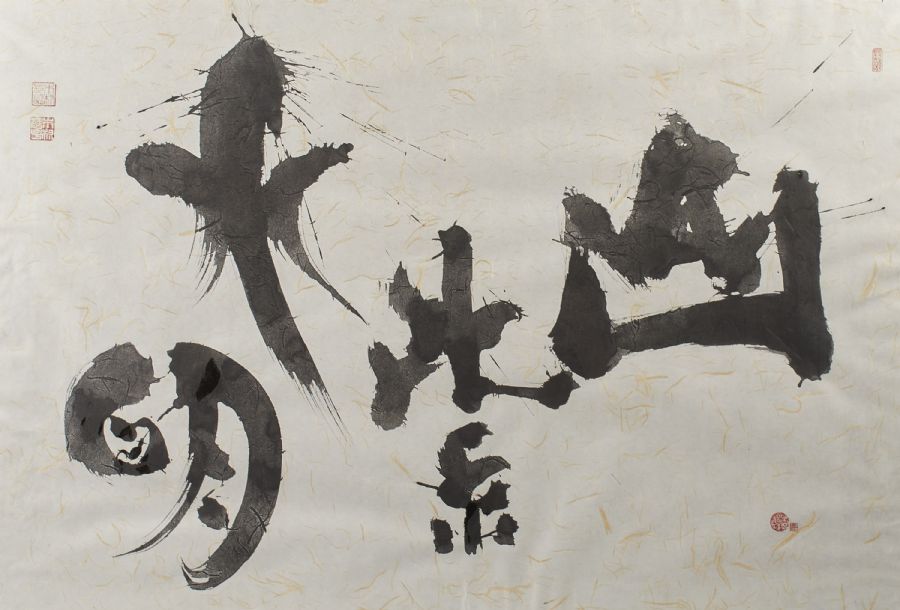 山
紫
水明